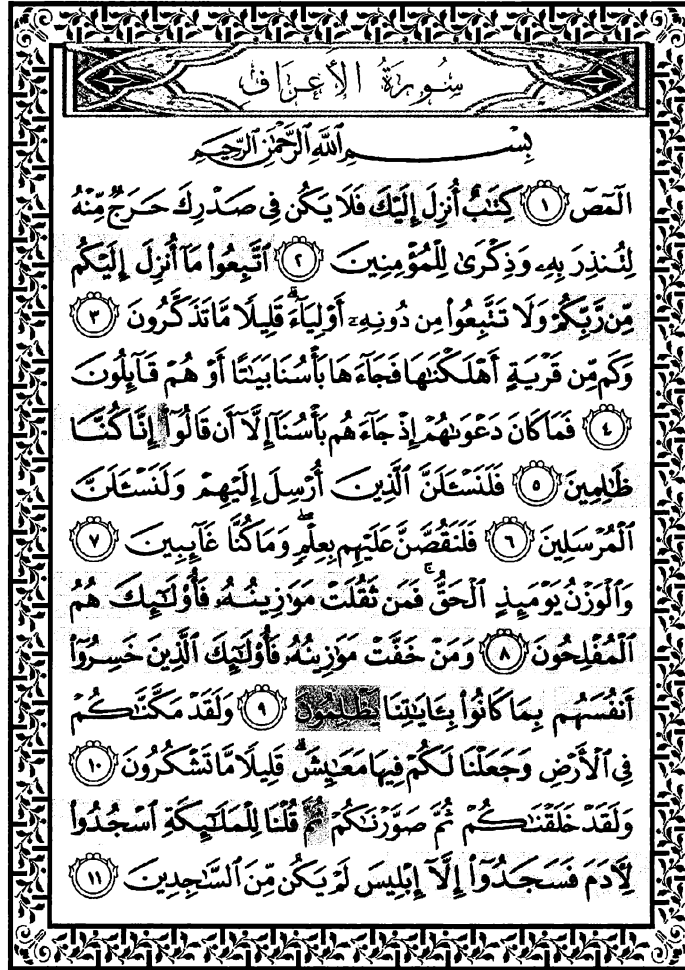 سُورَةُ الأَعْرَافِ
بِسْمِ ٱللَّهِ ٱلرَّحْمَٰنِ ٱلرَّحِيمِ
الٓمٓصٓ ١ كِتَٰبٌ أُنزِلَ إِلَيْكَ فَلَا يَكُن فِى صَدْرِكَ حَرَجٌ مِّنْهُ
لِتُنذِرَ بِهِۦ وَذِكْرَىٰ لِلْمُؤْمِنِينَ ٢ ٱتَّبِعُوا۟ مَآ أُنزِلَ إِلَيْكُم
مِّن رَّبِّكُمْ وَلَا تَتَّبِعُوا۟ مِن دُونِهِۦٓ أَوْلِيَآءَ ۗ قَلِيلًا مَّا تَذَكَّرُونَ ٣
وَكَم مِّن قَرْيَةٍ أَهْلَكْنَٰهَا فَجَآءَهَا بَأْسُنَا بَيَٰتًا أَوْ هُمْ قَآئِلُونَ
٤ فَمَا كَانَ دَعْوَىٰهُمْ إِذْ جَآءَهُم بَأْسُنَآ إِلَّآ أَن قَالُوٓا۟ إِنَّا كُنَّا
ظَٰلِمِينَ ٥ فَلَنَسْـَٔلَنَّ ٱلَّذِينَ أُرْسِلَ إِلَيْهِمْ وَلَنَسْـَٔلَنَّ
ٱلْمُرْسَلِينَ ٦ فَلَنَقُصَّنَّ عَلَيْهِم بِعِلْمٍ ۖ وَمَا كُنَّا غَآئِبِينَ ٧
وَٱلْوَزْنُ يَوْمَئِذٍ ٱلْحَقُّ ۚ فَمَن ثَقُلَتْ مَوَٰزِينُهُۥ فَأُو۟لَٰٓئِكَ هُمُ
ٱلْمُفْلِحُونَ ٨ وَمَنْ خَفَّتْ مَوَٰزِينُهُۥ فَأُو۟لَٰٓئِكَ ٱلَّذِينَ خَسِرُوٓا۟
أَنفُسَهُم بِمَا كَانُوا۟ بِـَٔايَٰتِنَا يَظْلِمُونَ ٩ وَلَقَدْ مَكَّنَّٰكُمْ
فِى ٱلْأَرْضِ وَجَعَلْنَا لَكُمْ فِيهَا مَعَٰيِشَ ۗ قَلِيلًا مَّا تَشْكُرُونَ ١٠
وَلَقَدْ خَلَقْنَٰكُمْ ثُمَّ صَوَّرْنَٰكُمْ ثُمَّ قُلْنَا لِلْمَلَٰٓئِكَةِ ٱسْجُدُوا۟
لِـَٔادَمَ فَسَجَدُوٓا۟ إِلَّآ إِبْلِيسَ لَمْ يَكُن مِّنَ ٱلسَّٰجِدِينَ ١١